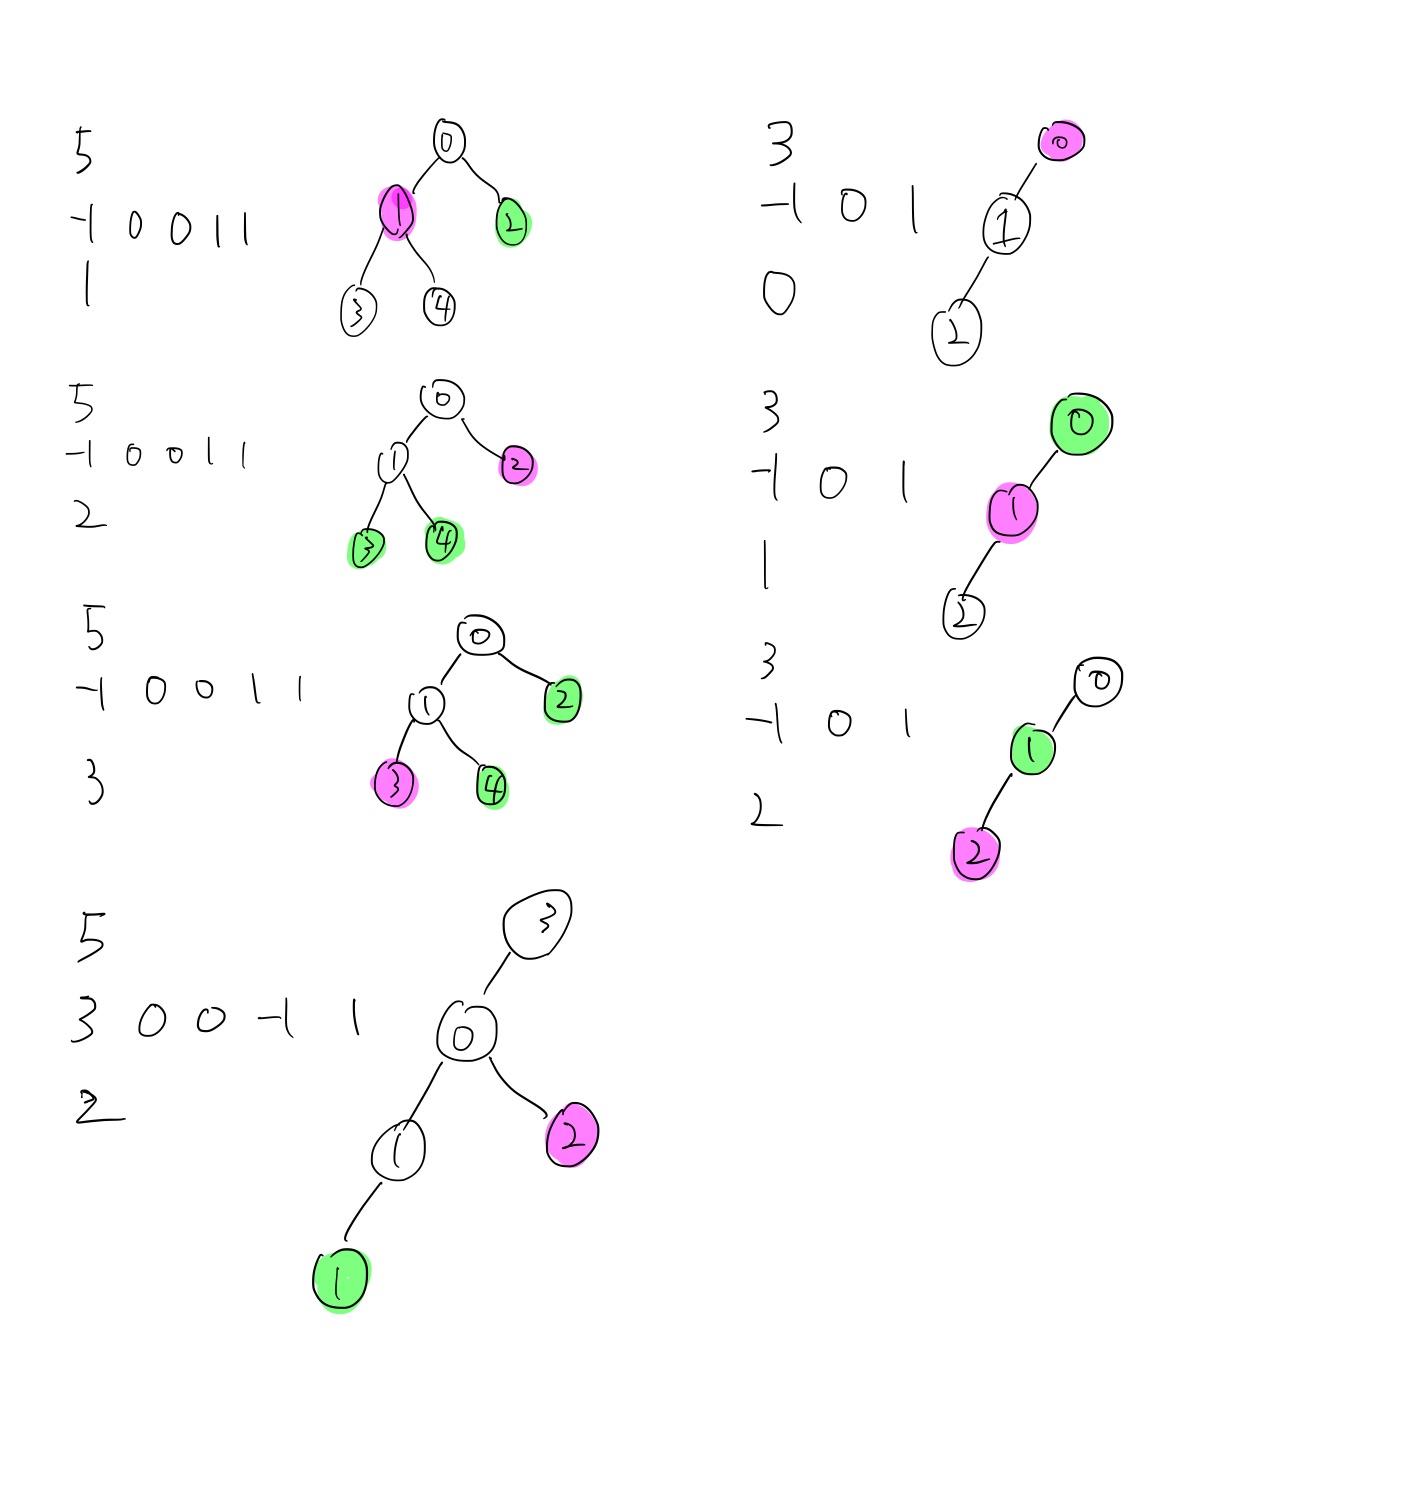 5
-1 0 0 1 1
1
0
1 2
3 4
5
-1 0 0 1 1
2
0
1 2
3 4
5
-1 0 0 1 1
3
0
1 2
3 4
5
3 0 0 -1 1
2
3
0
1 2
1
3
-1 0 1
0
0
1
2
3
-1 0 1
1
0
1
2
3
-1 0 1
2
0
1
2